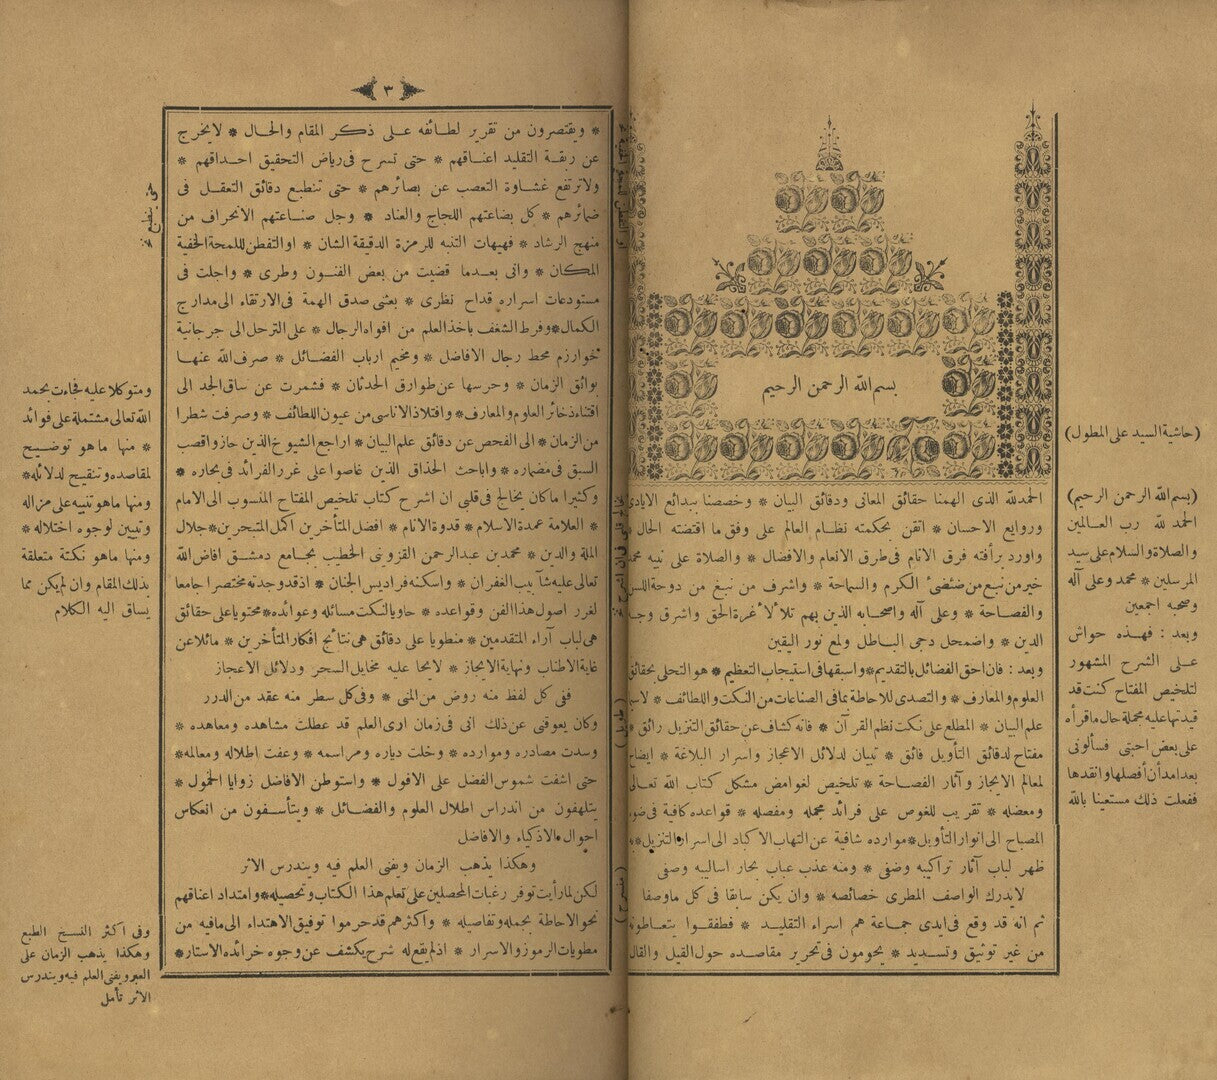 بسم الله الرحمن الرحيم
الحمد لله الذى الهمنا حقائق المعانى ودقائق البيان * وخصصنا ببدائع الايادى
وروايع الاحسان * اتقن بحكمته نظام العالم على وفق ما اقتضته الحال *
واورد برأفته فرق الانام فى طرق الانعام والافضال * والصلاة على نبيه محمد
خير من نبع من ضئضئ الكرم والسماحة * واشرف من نبغ من دوحة
والفصاحة * وعلى آله واصحابه الذين بهم تلألأ غرة الحق واشرق
الدين * واضمحل دجى الباطل ولمع نور اليقين
وبعد : فان احق الفضائل بالتقديم * واسبقها فى استيجاب التعظيم * هو التحلى بحقائق
العلوم والمعارف * والتصدى للاحاطة بما فى الصناعات من النكت واللطائف *
علم البيان * المطلع على نكت نظم القرآن * فانه كشاف عن حقائق التنزيل رائق *
مفتاح لدقائق التأويل فائق * تبيان لدلائل الاعجاز واسرار البلاغة * ايضاح
لمعالم الايجاز وآثار الفصاحة * تلخيص لغوامض مشكل كتاب الله تعالى
ومعضله * تقريب للغوص على فرائد مجمله ومفصله * قواعده كافية فى ضوء
المصباح الى انوار التأويل * موارده شافية عن التهاب الاكباد الى اسرار التنزيل *
ظهر لباب آثار تراكيبه وضفى * ومنه عذب عباب بحار اساليبه وصفى
لايدرك الواصف المطرى خصائصه * وان يكن سابقا فى كل ماوصفا
ثم انه قد وقع فى ايدى جماعة هم اسراء التقليد * فطفقوا يتعاطونه
من غير توثيق وتسديد * يحومون فى تحرير مقاصده حول القيل والقال
(حاشية السيد على المطول)
(بسم الله الرحمن الرحيم)
الحمد لله رب العالمين
والصلاة والسلام على سيد
المرسلين * محمد وعلى آله
وصحبه اجمعين
وبعد : فهذه حواش
على الشرح المشهور
لتلخيص المفتاح كنت قد
قيدتها عليه مجملة حال ما قرأه
على بعض احبتى فسألونى
بعد امد أن أفصلها وانقدها
ففعلت ذلك مستعينا بالله
٣
* ويقتصرون من تقرير لطائفه على ذكر المقام والحال * لايخرج
عن ربقة التقليد اعناقهم * حتى تسرح فى رياض التحقيق احداقهم *
ولاترتفع غشاوة التعصب عن بصائرهم * حتى تنطبع دقائق التعقل فى
ضمائرهم * كل بضاعتهم اللجاج والعناد * وجل صناعتهم الانحراف من
منهج الرشاد * فهيهات التنبه للرمزة الدقيقة الشان * او التفطن للمحة الخفية
المكان * وانى بعدما قضيت من بعض الفنون وطرى * واجلت فى
مستودعات اسراره قداح نظرى * بعثنى صدق الهمة فى الارتقاء الى مدارج
الكمال * وفرط الشغف باخذ العلم من افواه الرجال * على الترحل الى جرجانية
خوارزم محط رجال الافاضل * ومخيم ارباب الفضائل * صرف الله عنها
بوائق الزمان * وحرسها عن طوارق الحدثان * فشمرت عن ساق الجد الى
اقتناء ذخائر العلوم والمعارف * وافتلاذ الاناسى من عيون اللطائف * وصرفت شطرا
من الزمان * الى الفحص عن دقائق علم البيان * اراجع الشيوخ الذين حازوا قصب
السبق فى مضماره * واباحث الحذاق الذين غاصوا على غرر الفرائد فى بحاره *
وكثيرا ما كان يخالج فى قلبى ان اشرح كتاب تلخيص المفتاح المنسوب الى الامام
* العلامة عمدة الاسلام * قدوة الانام * افضل المتأخرين اكمل المتبحرين * جلال
الملة والدين * محمد بن عبدالرحمن القزوينى الخطيب بجامع دمشق افاض الله
تعالى عليه شآبيب الغفران * واسكنه فراديس الجنان * اذ قد وجدته مختصرا جامعا
لغرر اصول هذا الفن وقواعده * حاويا لنكت مسائله وعوائده * محتويا على حقائق
هى لباب آراء المتقدمين * منطويا على دقائق هى نتائج افكار المتأخرين * مائلا عن
غاية الاطناب ونهاية الايجاز * لائحا عليه مخايل السحر ودلائل الاعجاز
ففى كل لفظ منه روض من المنى * وفى كل سطر منه عقد من الدرر
وكان يعوقنى عن ذلك انى فى زمان ارى العلم قد عطلت مشاهده ومعاهده *
وسدت مصادره وموارده * وخلت دياره ومراسمه * وعفت اطلاله ومعالمه *
حتى اشفت شموس الفضل على الافول * واستوطن الافاضل زوايا الخمول *
يتلهفون من اندراس اطلال العلوم والفضائل * ويتأسفون من انعكاس
احوال الاذكياء والافاضل
وهكذا يذهب الزمان ويفنى العلم فيه ويندرس الاثر
لكن لما رأيت توفر رغبات المحصلين على تعلم هذا الكتاب وتحصيله * وامتداد اعناقهم
نحو الاحاطة بجمله وتفاصيله * واكثرهم قد حرموا توفيق الاهتداء الى مافيه من
مطويات الرموز والاسرار * اذ لم يقع له شرح يكشف عن وجوه خرائده الاستار *
ومتوكلا عليه فجاءت بحمد
الله تعالى مشتملة على فوائد
* منها ما هو توضيح
لمقاصده وتنقيح لدلائله *
ومنها ما هو تنبيه على مزاله
وتبيين لوجوه اختلاله *
ومنها ما هو نكتة متعلقة
بذلك المقام وان لم يكن مما
يساق اليه الكلام
وفى اكثر النسخ الطبع
وهكذا يذهب الزمان على
العبر ويفنى العلم فيه ويندرس
الاثر تأمل